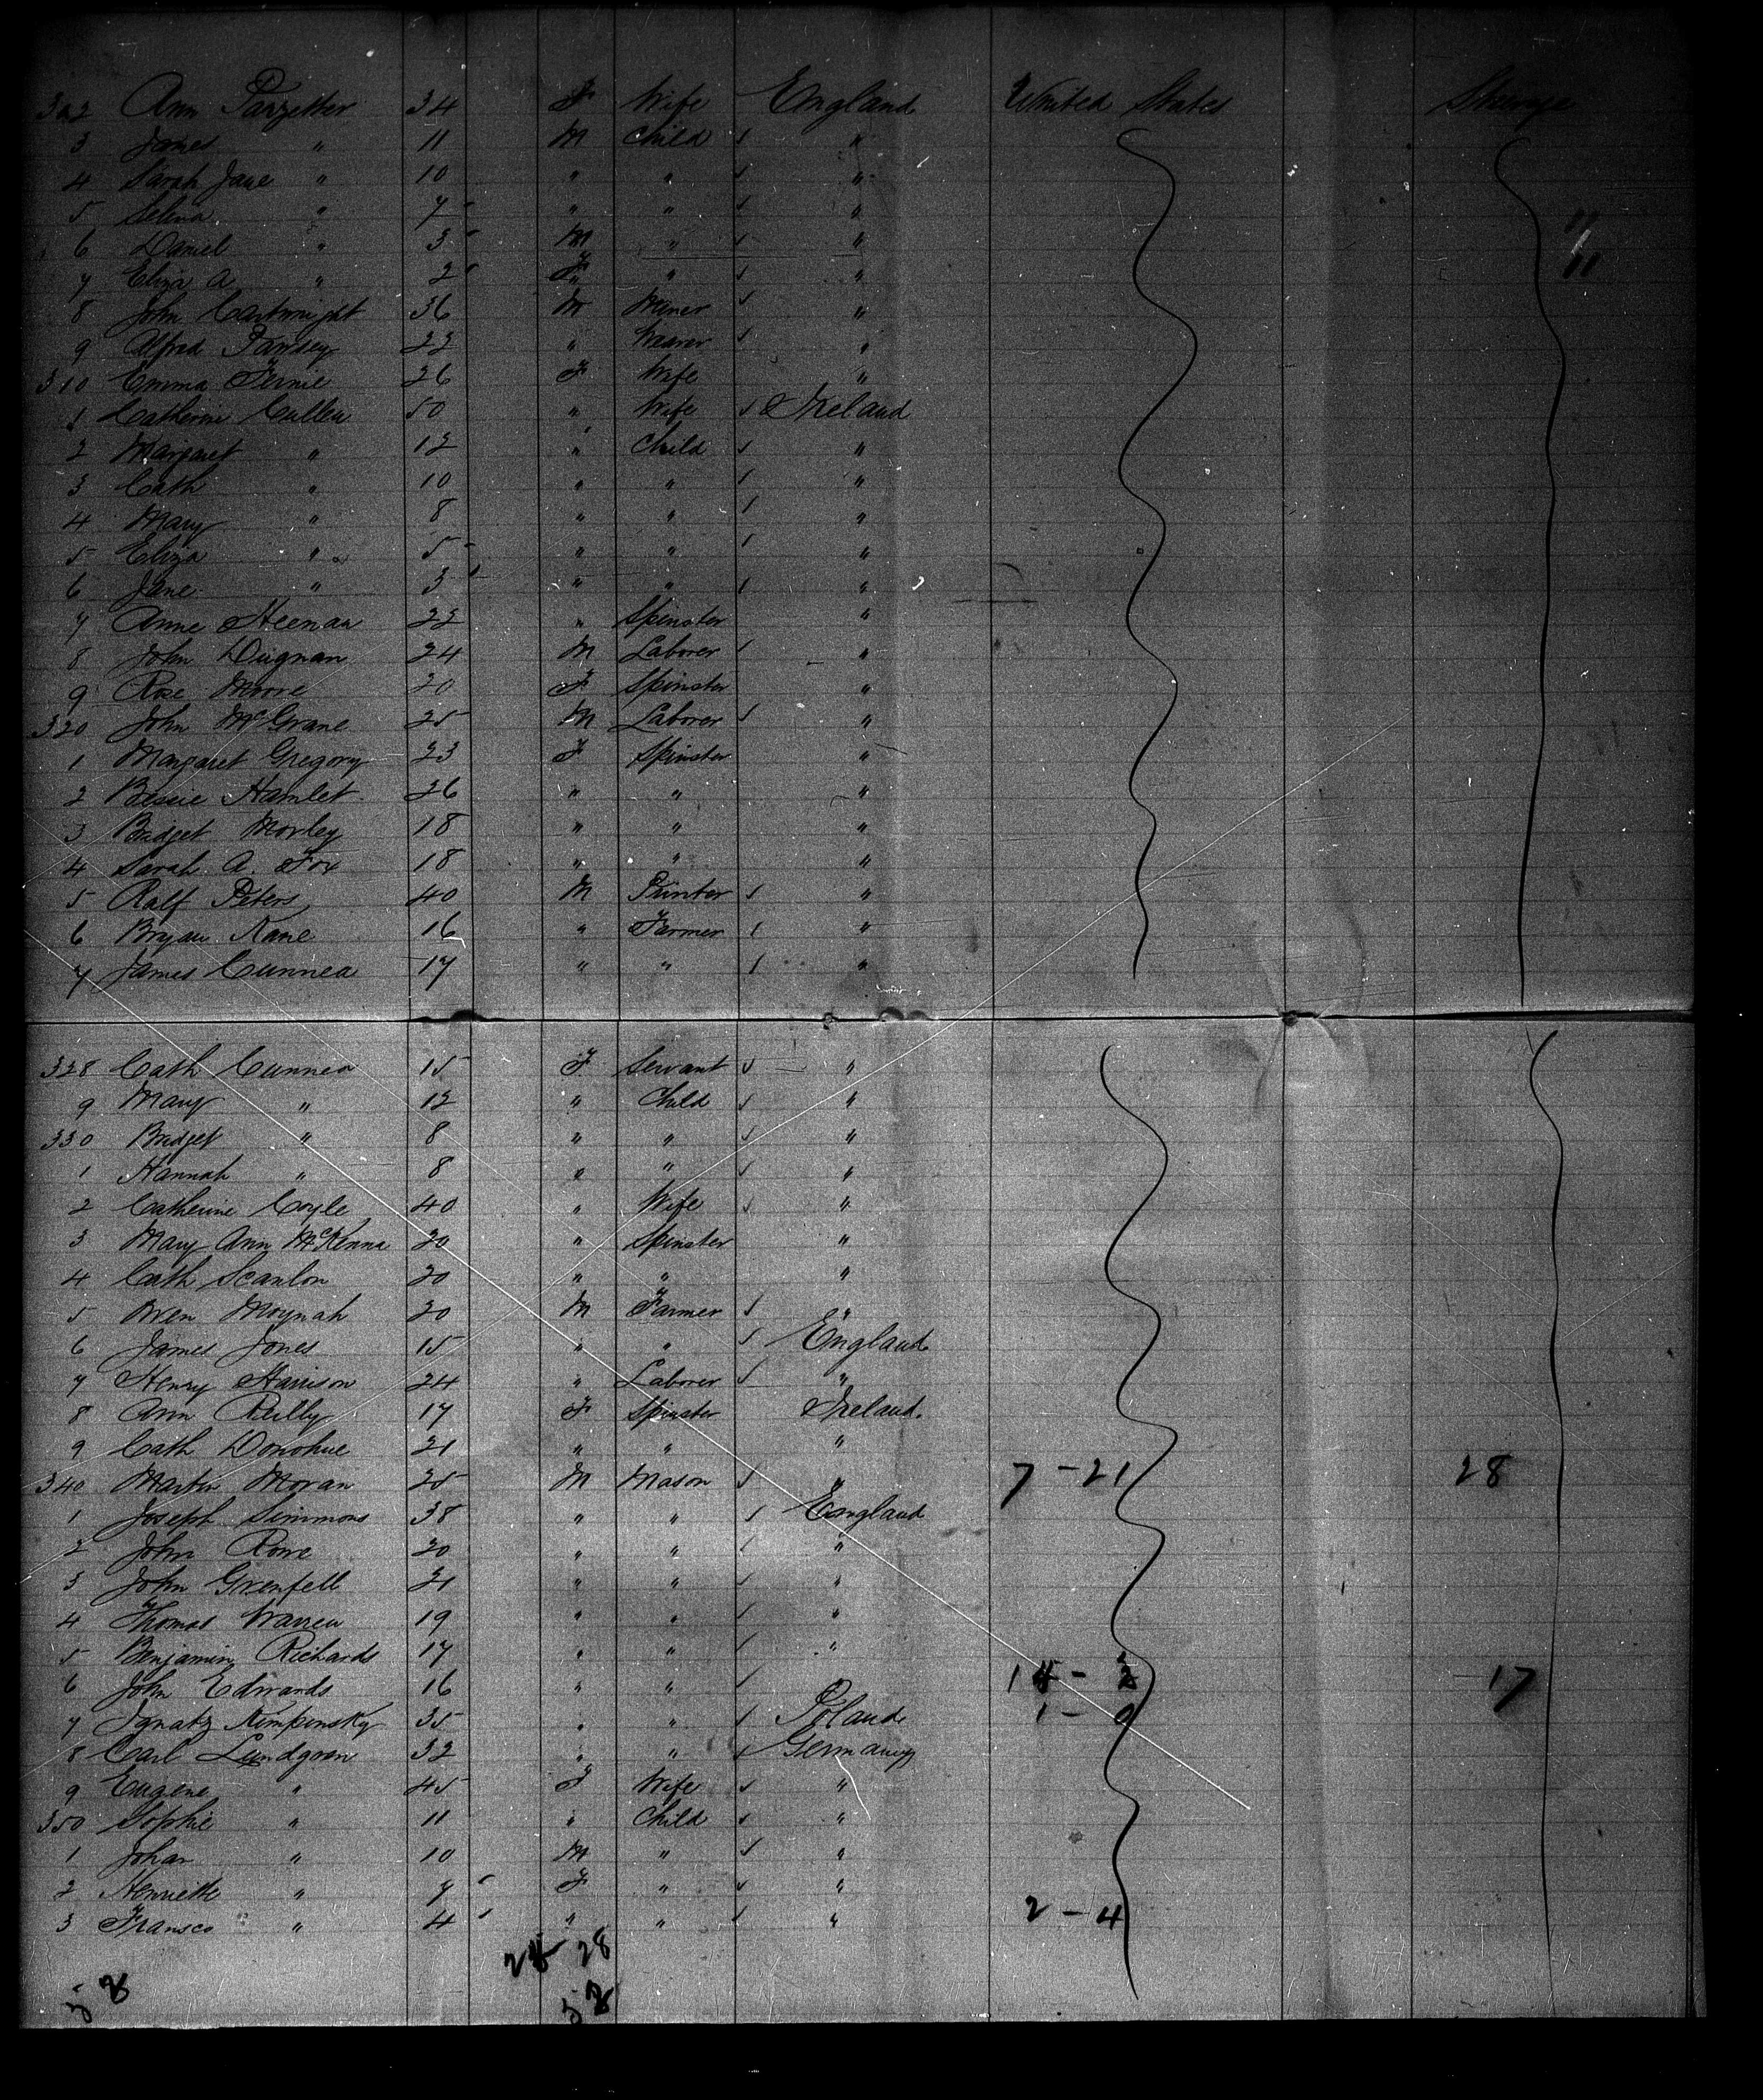 302 Ann Parzetter 34 F Wife England United States Steerage
3 James " 11 M Child "
4 Sarah Jane " 10 " " "
5 Selina " 7 " " "
6 Daniel " 3 M " "
7 Eliza A " 2 F " "
8 John Cartwright 36 M Miner "
9 Alfred 22 " Weaver "
310 Emma Fernie 26 F Wife "
1 Catherin Cullen 50 " Wife Ireland
2 Margaret " 12 " Child "
3 Cath " 10 " " "
4 Mary " 8 " " "
5 Eliza " 5 " " "
6 Jane " 3 " " "
7 Anne Heenan 22 " Spinster "
8 John Dugnan 24 M Laborer "
9 Rose Moore 20 F Spinster "
320 John McGrane 25 M Laborer "
1 Margaret Gregory 23 F Spinster "
2 Bessie Hamlet 26 " " "
3 Bridget Morley 18 " " "
4 Sarah A. Fox 18 " " "
5 Ralf Peters 40 M Printer "
6 Bryan Kane 16 " Farmer "
7 James Cunnea 17 " " "
328 Cath Cunnea 15 F Servant "
9 Mary " 12 " Child "
330 Bridget " 8 " " "
1 Hannah " 8 " " "
2 Catherine Coyle 40 " Wife "
3 Mary Ann McKenna 20 " Spinster "
4 Cath Scanlon 20 " " "
5 Owen Moynah 20 M Farmer "
6 James Jones 15 " " England
7 Henry Harrison 24 " Laborer "
8 Ann Reilly 17 F Spinster Ireland.
9 Cath Donohue 21 " " "
340 Martin Moran 25 M Mason " 7-21 28
1 Joseph Simmons 38 " " England
2 John Rowe 20 " " "
3 John Grenfell 21 " " "
4 Thomas Warren 19 " " "
5 Benjamin Richards 17 " " "
6 John Edwards 16 " " 17
7 Ignatz Kempinsky 35 " " Poland 1-0
8 Carl Lundgren 32 " " Germany
9 Eugene " 45 F Wife "
350 Sophie " 11 " Child "
1 Johan " 10 M " "
2 Henriette " 7 F " "
3 Fransco " 4 " " " 2-4
28